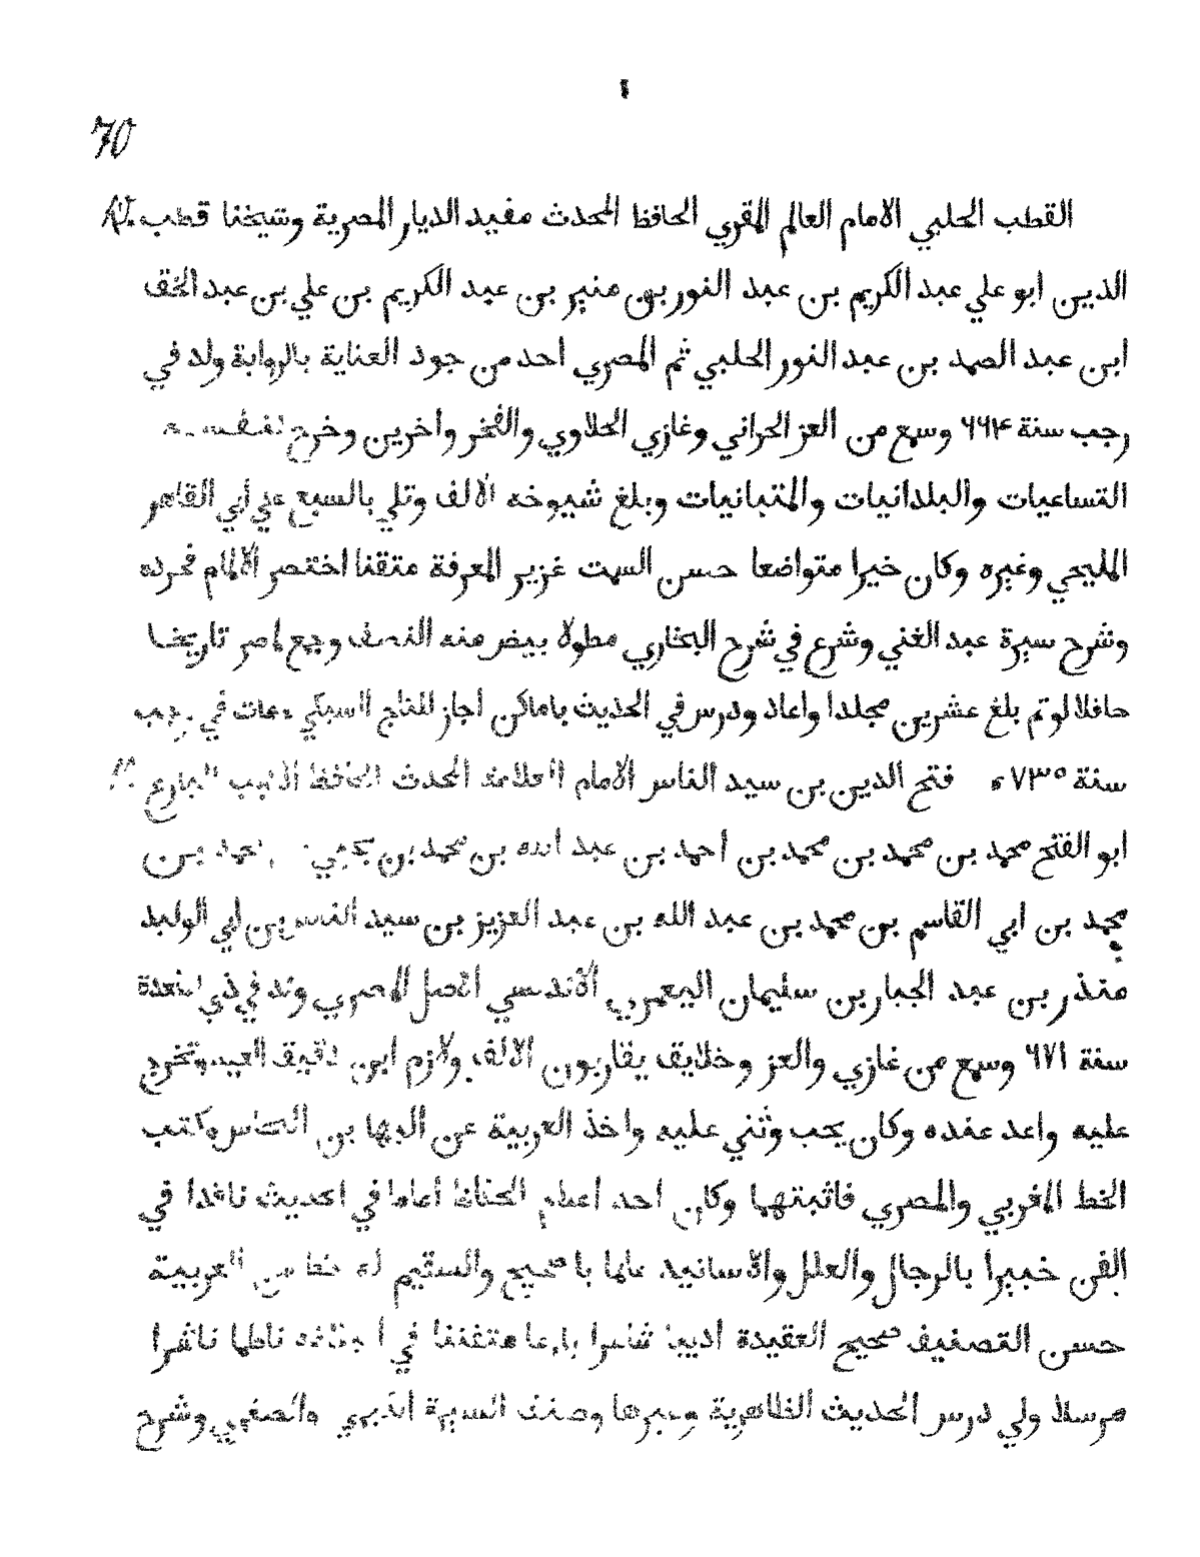 ١
70
القطب الحلبي الامام العالم المقري الحافظ المحدث مفيد الديار المصرية وشيخنا قطب
الدين ابو علي عبد الكريم بن عبد النور بن منير بن عبد الكريم بن علي بن عبد الحق
ابن عبد الصمد بن عبد النور الحلبي ثم المصري احد من جود العناية بالرواية ولد في
رجب سنة ٦٦٤ وسمع من العز الحراني وغازي الحلاوي والفخر واخرين وخرج لنفسه
التساعيات والبلدانيات والمتبانيات وبلغ شيوخه الالف وتلي بالسبع علي أبي الطاهر
المليحي وغيره وكان خيرا متواضعا حسن السمت غزير المعرفة متقنا اختصر الالمام فحرده
وشرح سيرة عبد الغني وشرع في شرح البخاري مطولا بيض منه النصف وجمع لمصر تاريخا
حافلا لو تم بلغ عشرين مجلدا واعاد ودرس في الحديث باماكن أجاز للتاج السبكي ومات في رجب
سنة ٧٣٥ فتح الدين بن سيد الناس الامام العلامة المحدث الحافظ الاديب البارع
ابو الفتح محمد بن محمد بن محمد بن احمد بن عبد الله بن محمد بن يحيي بن محمد بن
محمد بن ابي القاسم بن محمد بن عبد الله بن عبد العزيز بن سيد الناس بن أبي الوليد
منذر بن عبد الجبار بن سليمان اليعمري الاندلسي الاصل المصري ولد في ذي القعدة
سنة ٦٧١ وسمع من غازي والعز وخلايق يقاربون الالف ولازم ابن دقيق العيد وتخرج
عليه واعد عنده وكان يحب وثني عليه واخذ العربية عن البها بن النحاس وكتب
الخط المغربي والمصري فاثبتهما وكان احد أعلام الحفاظ أماما في الحديث ناقدا في
الفن خبيرا بالرجال والعلل والاسانيد عالما بالصحيح والسقيم له حظ من العربية
حسن التصنيف صحيح العقيدة اديبا شاعرا بارعا متفننا في ناظما ناثرا
مرسلا ولي درس الحديث الظاهرية وغيرها وصنف السيرة الكبري والصغري وشرح